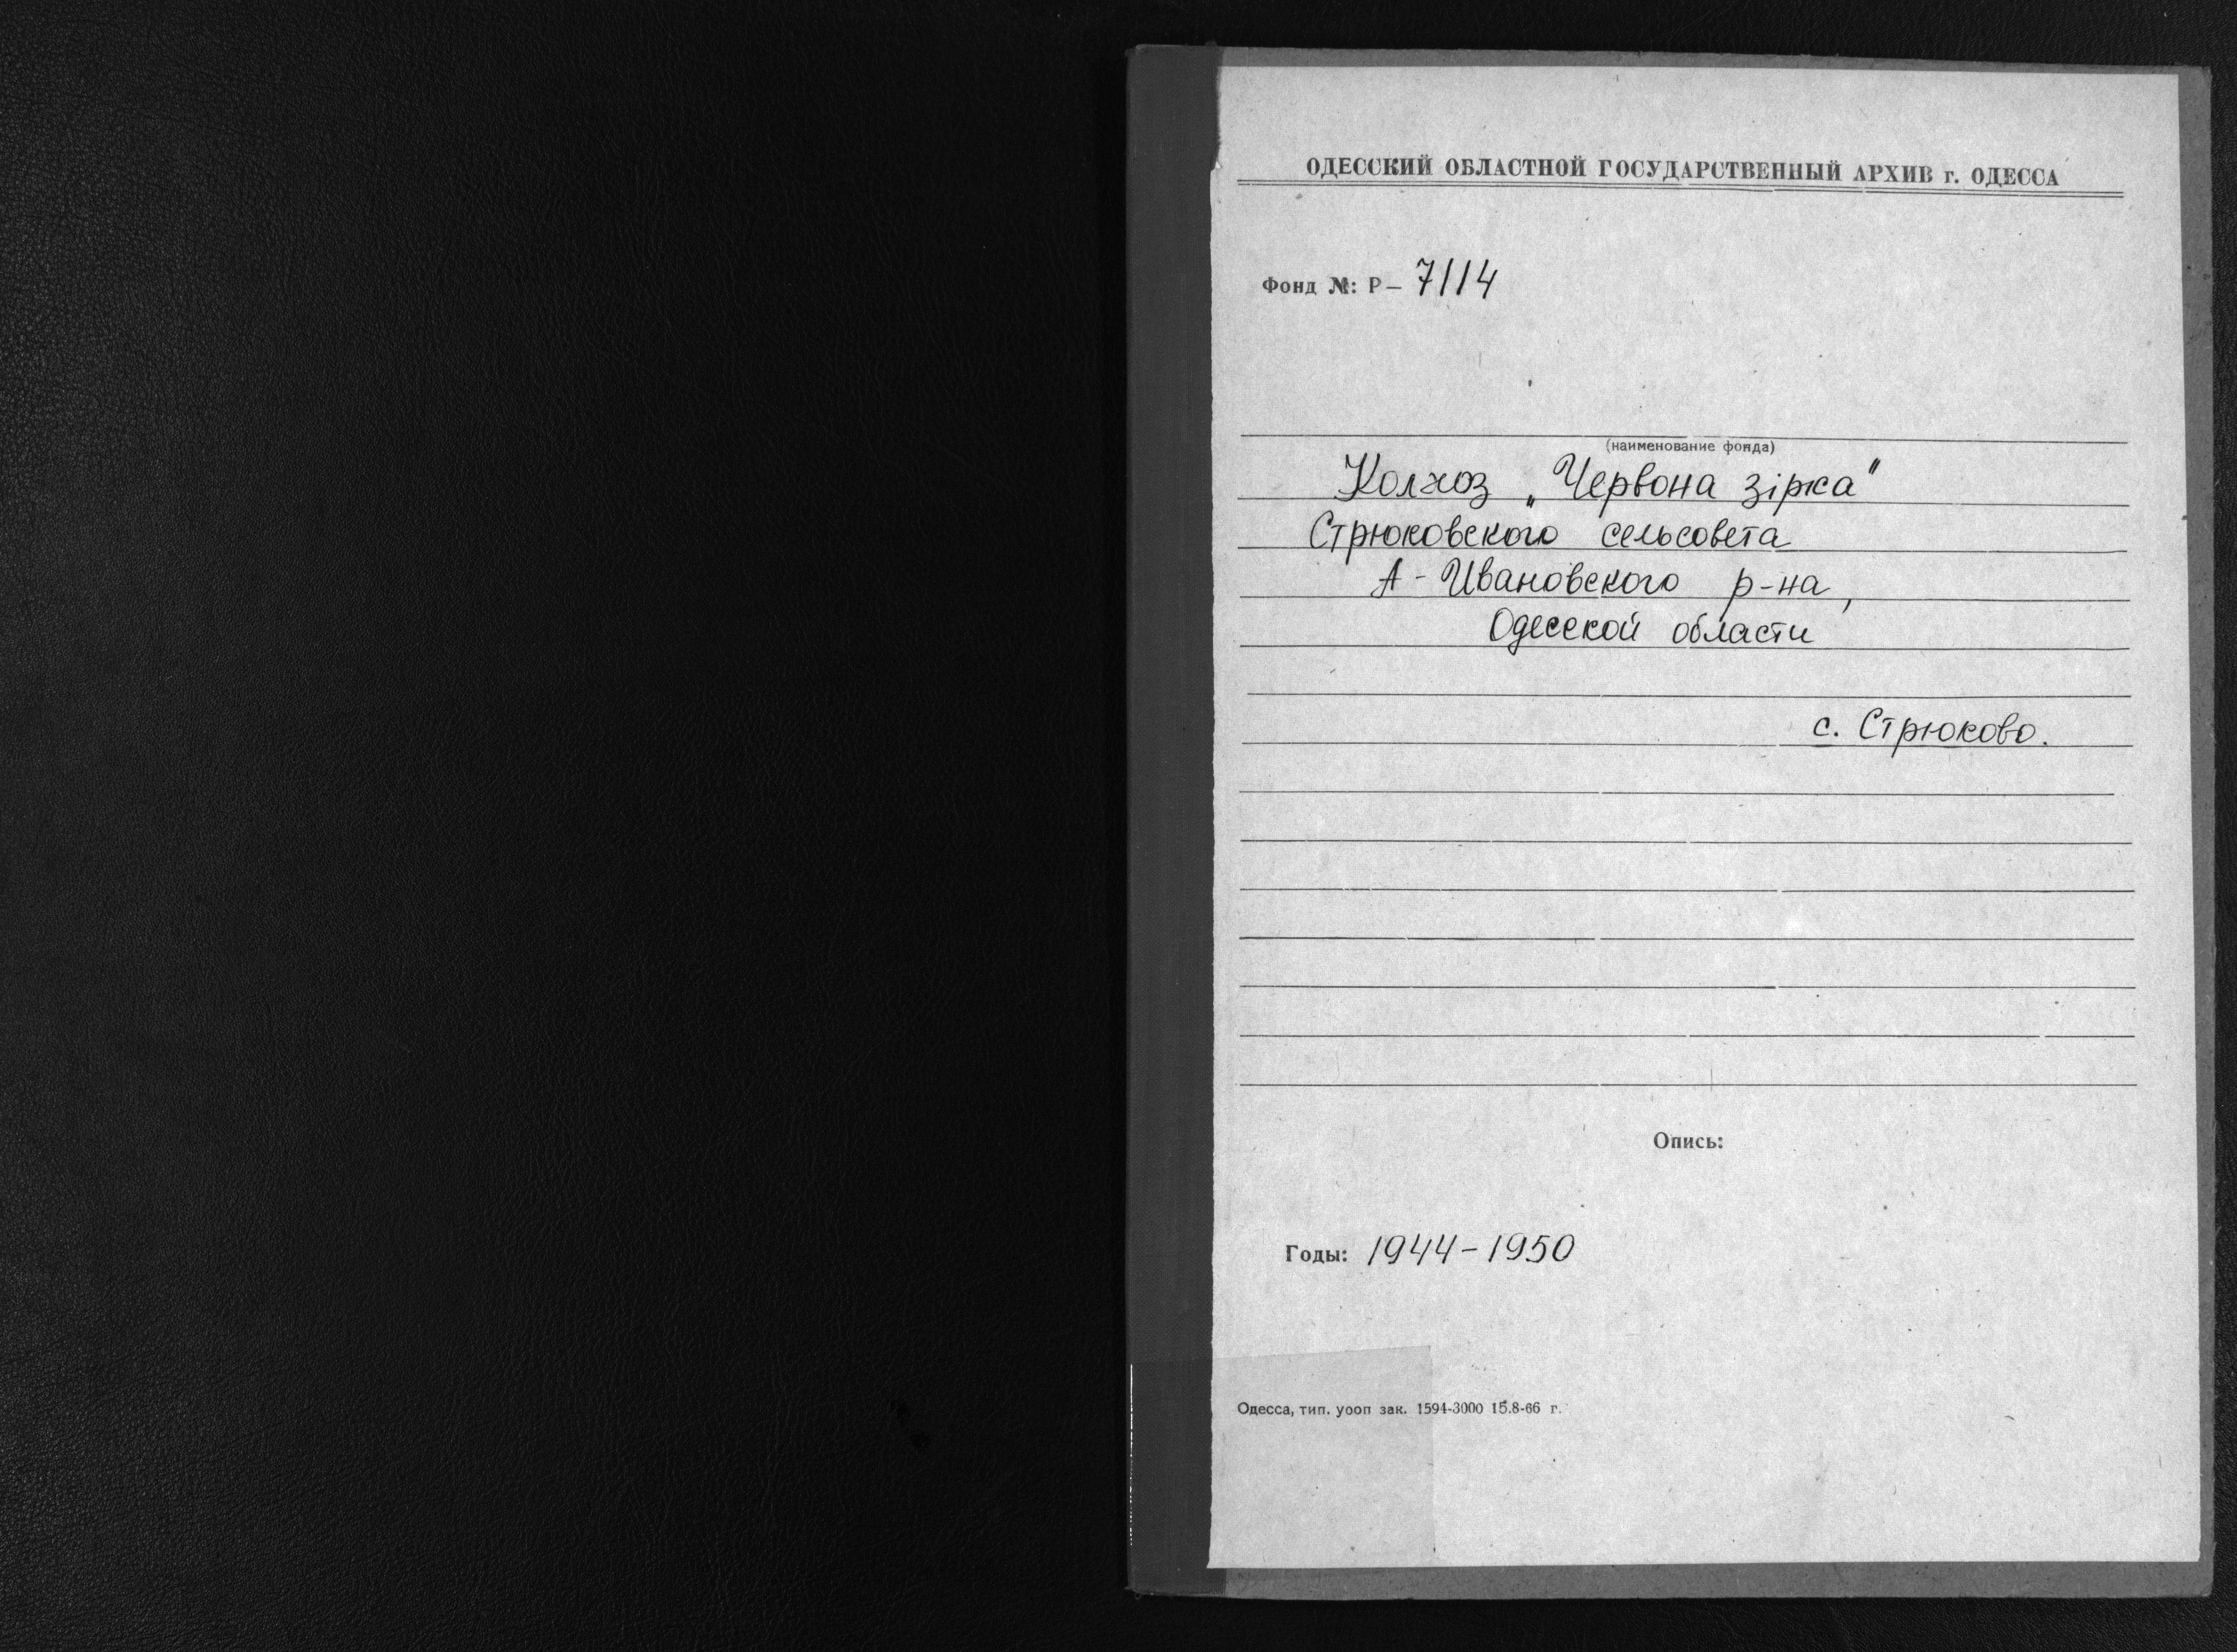 ОДЕССКИЙ ОБЛАСТНОЙ ГОСУДАРСТВЕННЫЙ АРХИВ г. ОДЕССА
Фонд №: Р— 7114
(наименование фонда)
Колхоз „Червона зірка“
Стрюковского сельсовета
А-Ивановского р-на,
Одесской области
с. Стрюково.
Опись:
Годы: 1944-1950
Одесса, тип. уооп зак. 1594-3000 15.8-66 г.